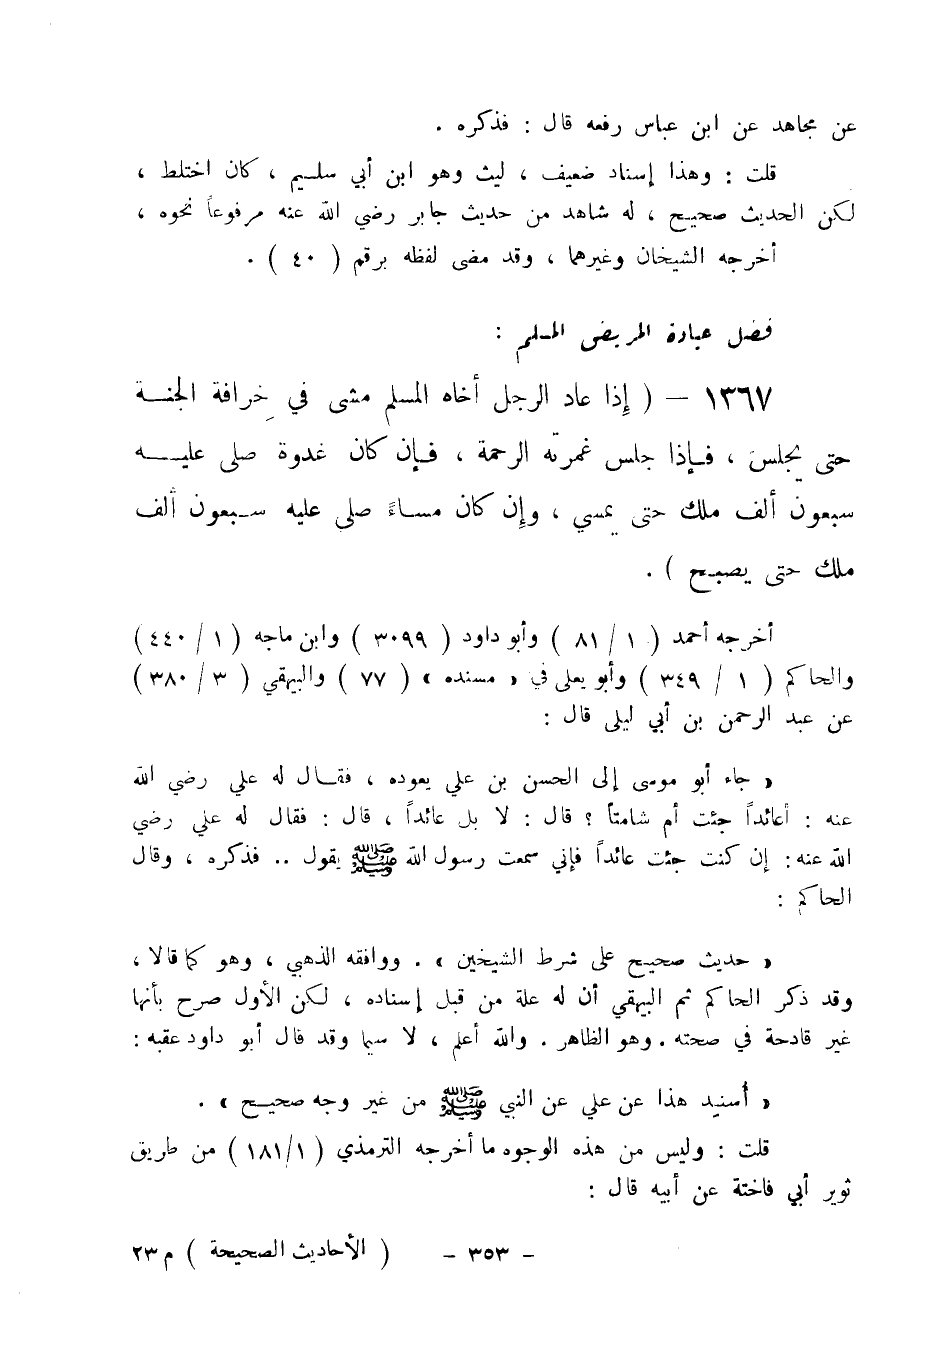 عن مجاهد عن ابن عباس رفعه قال : فذكره .
قلت : وهذا إسناد ضعيف ، ليث وهو ابن أبي سليم ، كان اختلط ،
لكن الحديث صحيح ، له شاهد من حديث جابر رضي الله عنه مرفوعاً نحوه ،
أخرجه الشيخان وغيرهما ، وقد مضى لفظه برقم ( ٤٠ ) .
فضل عيادة المريض المسلم :
١٣٦٧ – ( إِذا عاد الرجل أخاه المسلم مشى في خِرافة الجنة
حتى يجلسَ ، فإذا جلس غمرته الرحمة ، فإن كان غدوة صلى عليه
سبعون ألف ملك حتى يمسي ، وإِن كان مساءً صلى عليه سبعون ألف
ملك حتى يصبح ) .
أخرجه أحمد ( ١ / ٨١ ) وأبو داود ( ٣٠٩٩ ) وابن ماجه ( ١ / ٤٤٠ )
والحاكم ( ١ / ٣٤٩ ) وأبو يعلى في « مسنده » ( ٧٧ ) والبيهقي ( ٣ / ٣٨٠ )
عن عبد الرحمن بن أبي ليلى قال :
« جاء أبو موسى إلى الحسن بن علي يعوده ، فقال له علي رضي الله
عنه : أعائداً جئت أم شامتاً ؟ قال : لا بل عائداً ، قال : فقال له علي رضي
الله عنه : إن كنت جئت عائداً فإني سمعت رسول الله ﷺ يقول .. فذكره ، وقال
الحاكم :
« حديث صحيح على شرط الشيخين » . ووافقه الذهبي ، وهو كما قالا ،
وقد ذكر الحاكم ثم البيهقي أن له علة من قبل إسناده ، لكن الأول صرح بأنها
غير قادحة في صحته . وهو الظاهر . والله أعلم ، لا سيما وقد قال أبو داود عقبه :
« أُسنِد هذا عن علي عن النبي ﷺ من غير وجه صحيح » .
قلت : وليس من هذه الوجوه ما أخرجه الترمذي ( ١/١٨١ ) من طريق
ثوير أبي فاختة عن أبيه قال :
- ٣٥٣ - ( الأحاديث الصحيحة ) م ٢٣